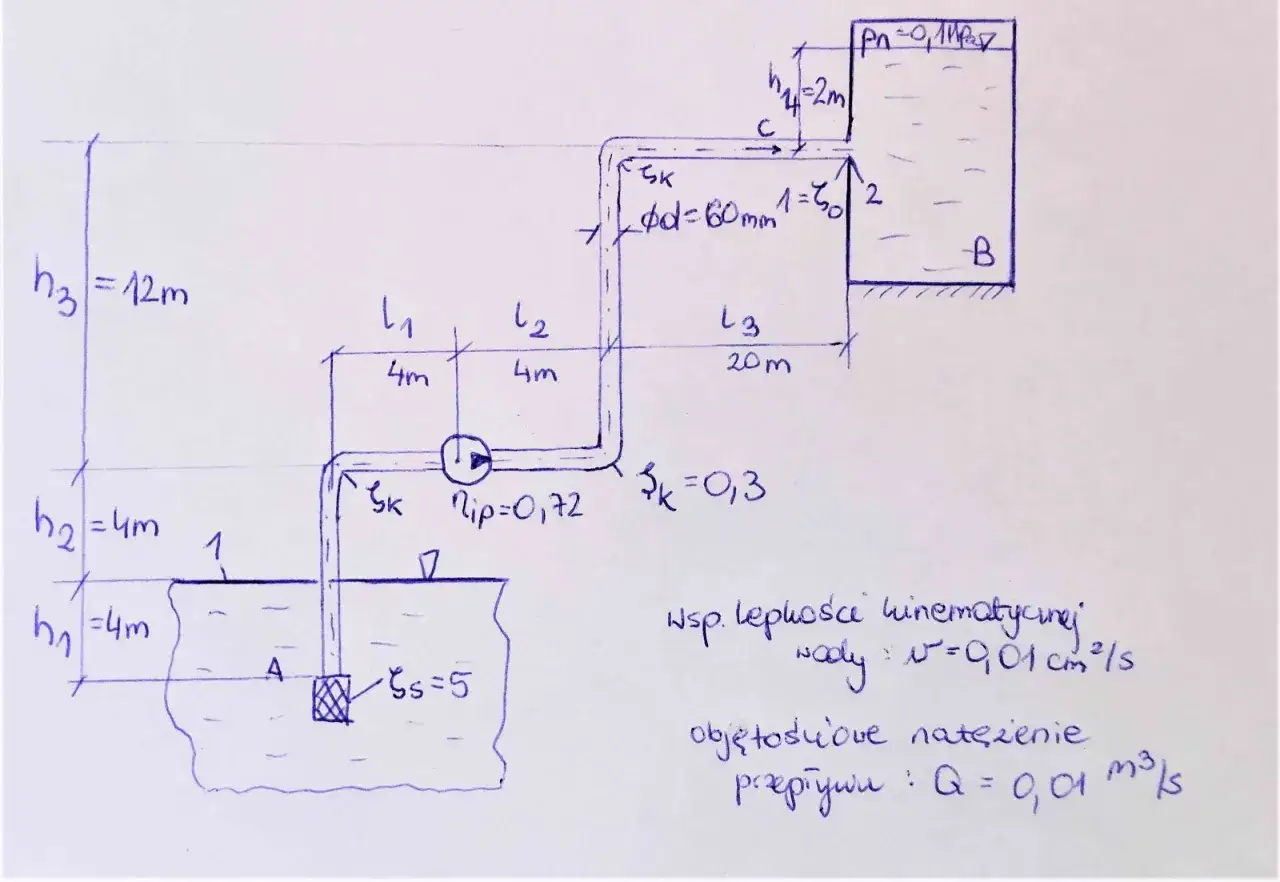 pn=0,1MPa
h4=2m
C
ζk
1=ζo
2
ϕd=60mm
B
h3=12m
l1
l2
l3
4m
4m
20m
ζk
ηip=0,72
ζk=0,3
h2=4m
1
h1=4m
A
ζs=5
wsp. lepkości kinematycznej
wody : ν=0,01cm²/s
objętościowe natężenie
przepływu : Q = 0,01 m³/s